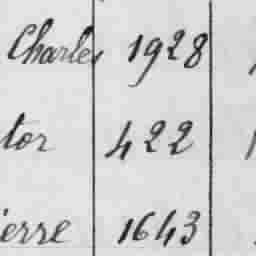 Charles 1928
tor 422
ierre 1643